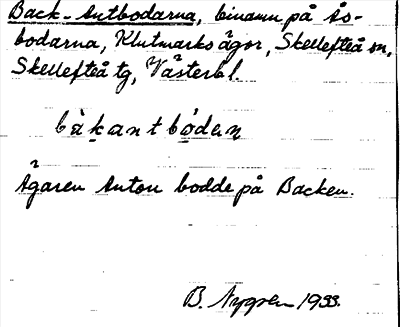 Back-Antbodarna, binamn på Ås-
bodarna, Klutmarks ägor, Skellefteå sn,
Skellefteå tg, Västerbl.
bàkantbódan
Ägaren Anton bodde på Backen.
B. Nygren 1933.